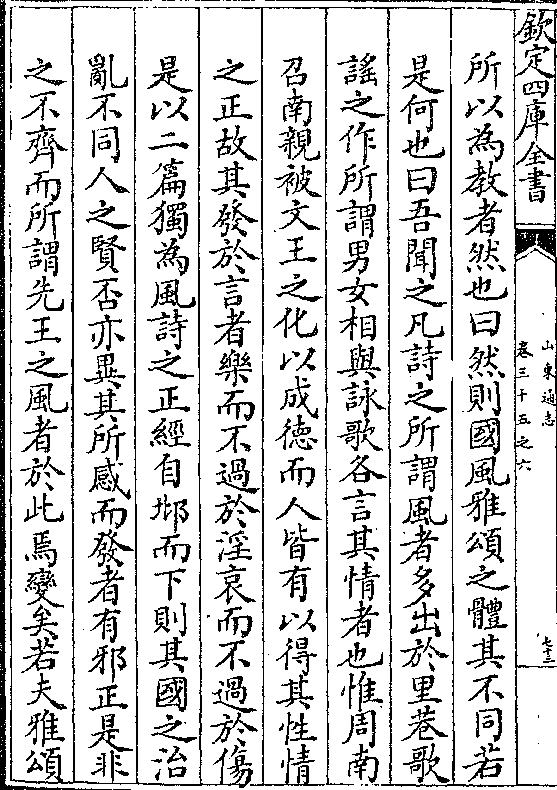 欽定四庫全書
山東通志
卷三十五之六
七十三
所以為教者然也曰然則國風雅頌之體其不同若
是何也曰吾聞之凡詩之所謂風者多出於里巷歌
謠之作所謂男女相與詠歌各言其情者也惟周南
召南親被文王之化以成德而人皆有以得其性情
之正故其發於言者樂而不過於淫哀而不過於傷
是以二篇獨為風詩之正經自邶而下則其國之治
亂不同人之賢否亦異其所感而發者有邪正是非
之不齊而所謂先王之風者於此焉變矣若夫雅頌